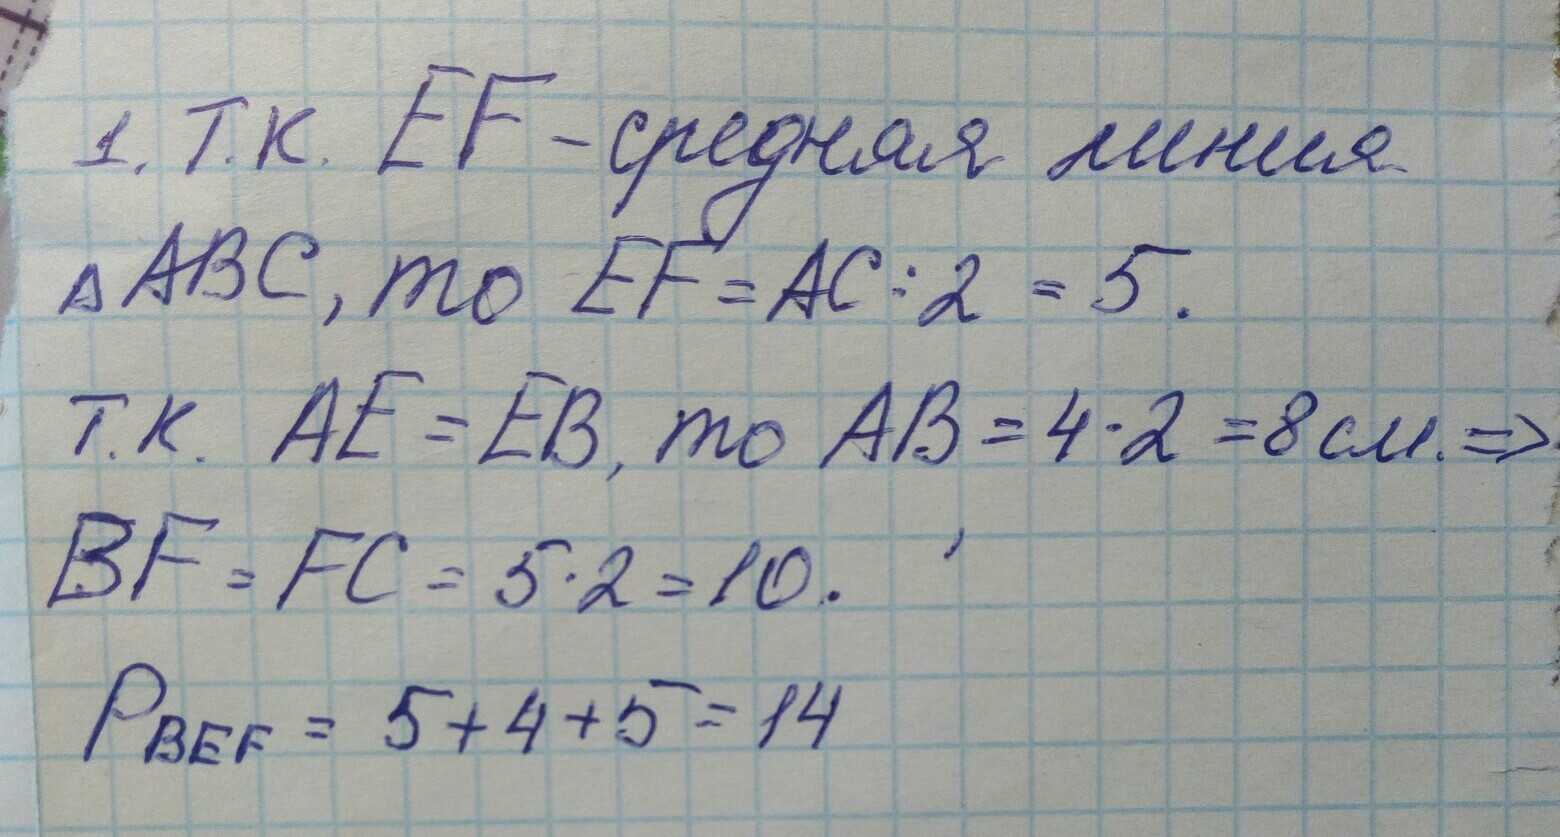 1. Т.К. EF - средняя линия
△ ABC, то EF = AC : 2 = 5.
Т.К. AE = EB, то AB = 4·2 = 8 см. =>
BF = FC = 5·2 = 10.
P BEF = 5 + 4 + 5 = 14